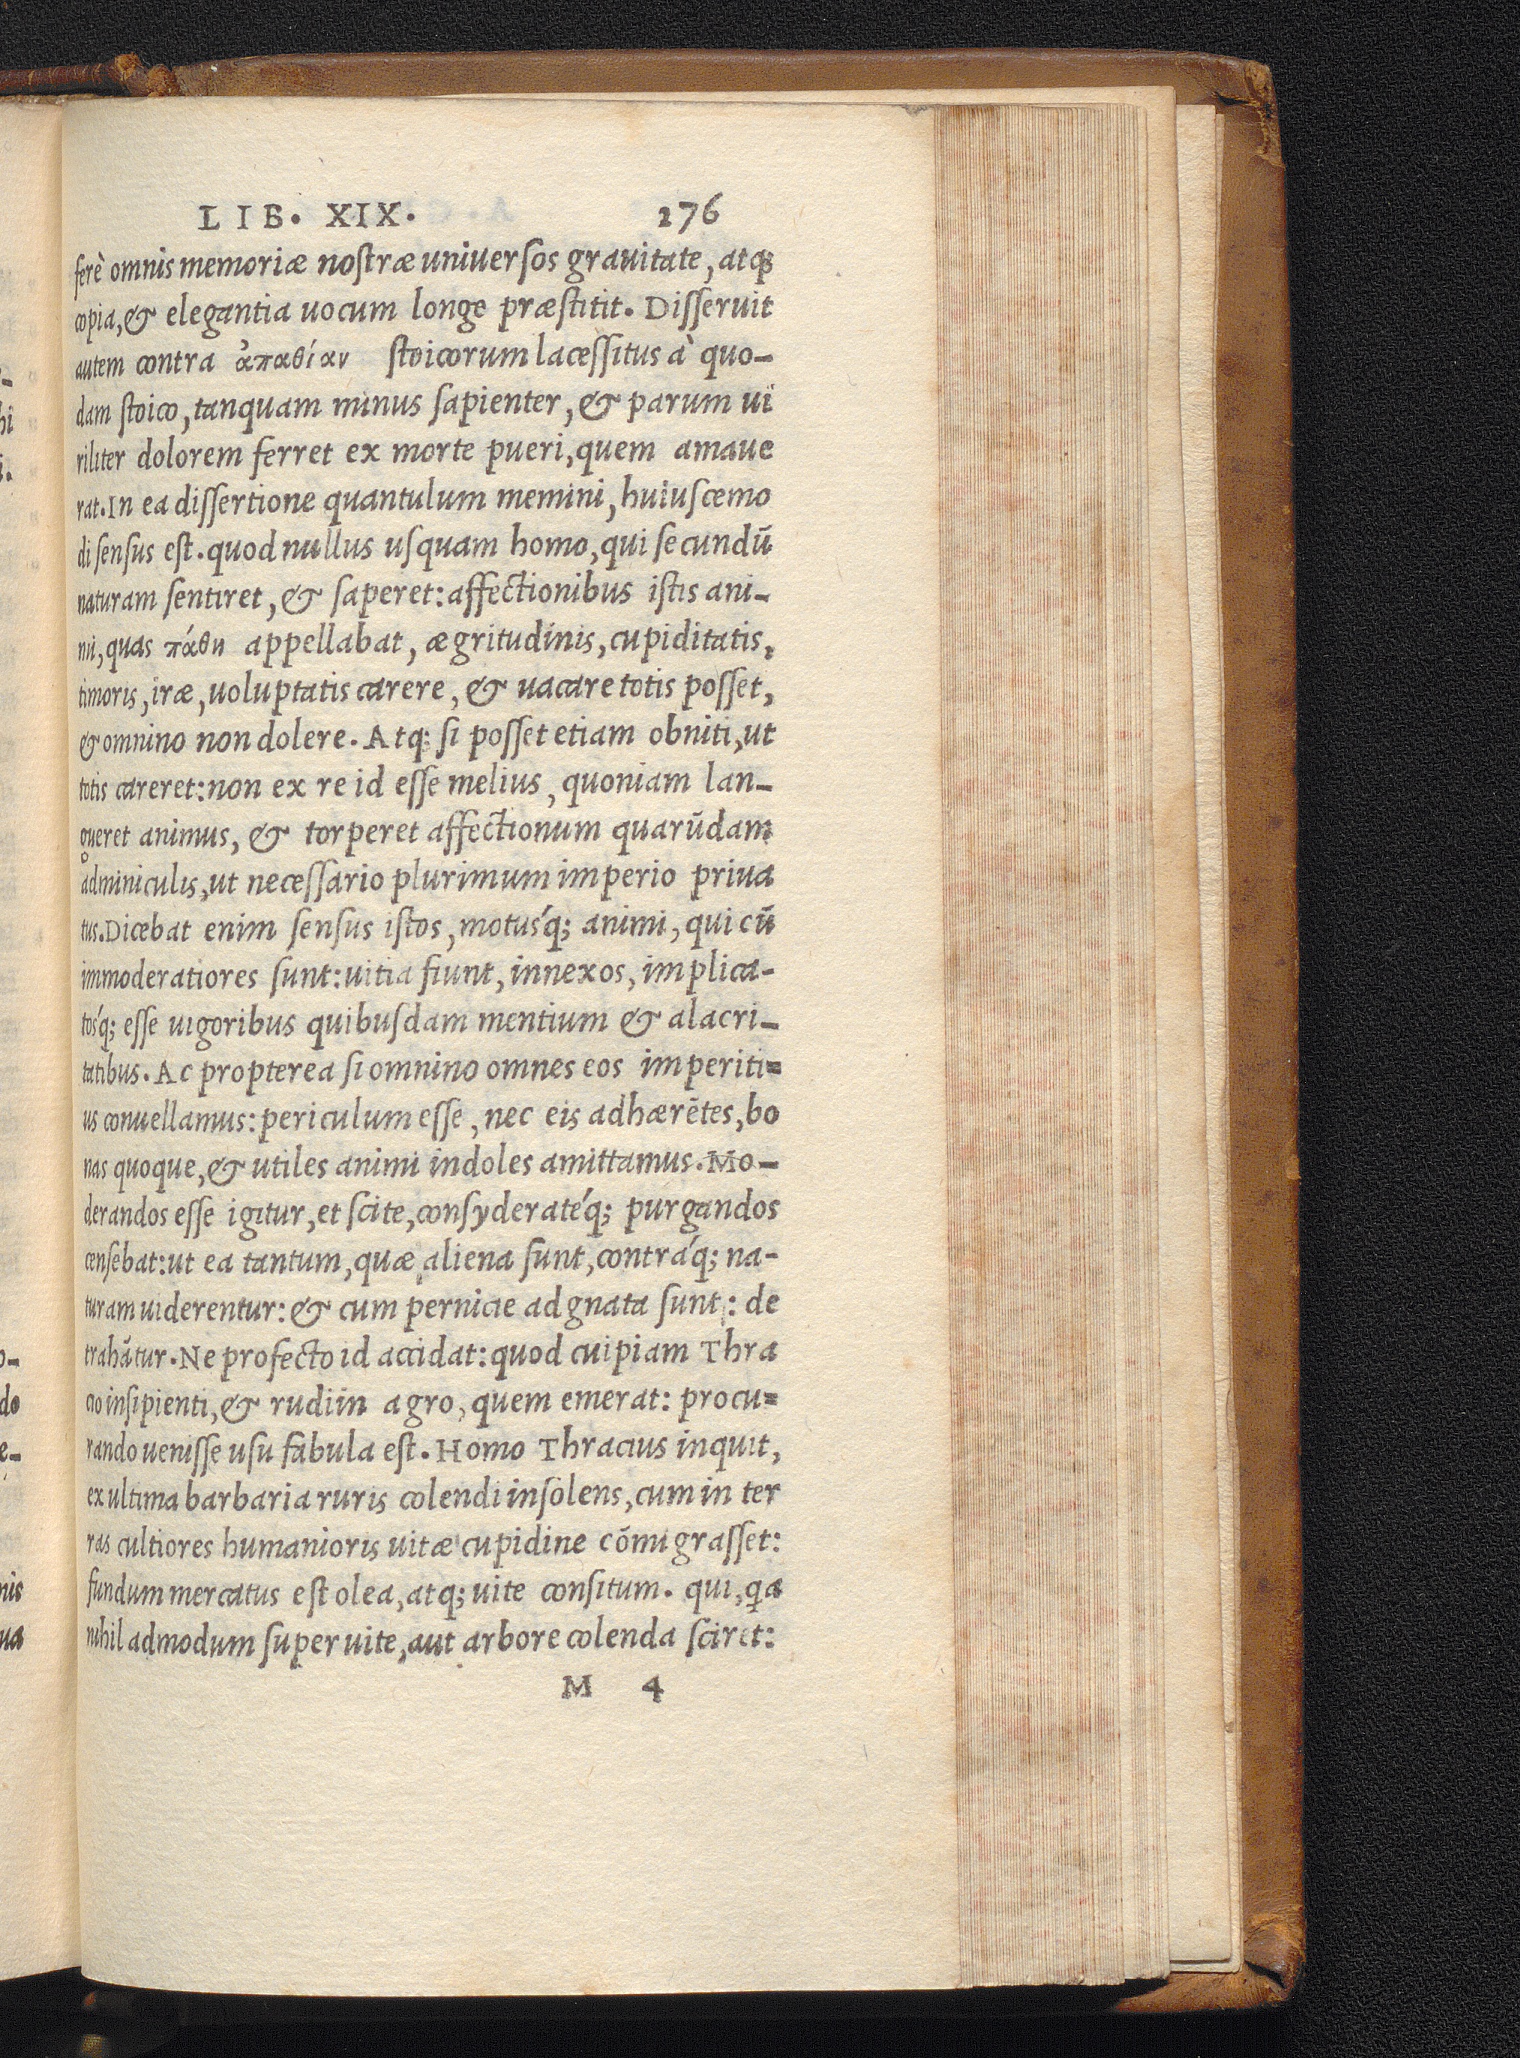 LIB. XIX. 276
ferè omnis memoriæ nostræ uniuersos grauitate, atq;
copia, & elegantia uocum longe præstitit. Disseruit
autem contra ἀπαθίαν stoicorum lacessitus à quo-
dam stoico, tanquam minus sapienter, & parum ui
riliter dolorem ferret ex morte pueri, quem amaue
rat. In ea dissertione quantulum memini, huiuscemo
di sensus est. quod nullus usquam homo, qui secundũ
naturam sentiret, & saperet: affectionibus istis ani-
mi, quas πάθη appellabat, ægritudinis, cupiditatis,
timoris, iræ, uoluptatis carere, & uacare totis posset,
& omnino non dolere. Atq; si posset etiam obniti, ut
totis careret: non ex re id esse melius, quoniam lan-
gueret animus, & torperet affectionum quarũdam
adminiculis, ut necessario plurimum imperio priua
tus. Dicebat enim sensus istos, motusq́; animi, qui cũ
immoderatiores sunt: uitia fiunt, innexos, implica-
tosq́; esse uigoribus quibusdam mentium & alacri-
tatibus. Ac propterea si omnino omnes eos imperiti-
us conuellamus: periculum esse, nec eis adhærẽtes, bo
nas quoque, & utiles animi indoles amittamus. Mo-
derandos esse igitur, et scite, consyderateq́; purgandos
censebat: ut ea tantum, quæ aliena sunt, contraq́; na-
turam uiderentur: & cum pernicie adgnata sunt: de
trahãtur. Ne profecto id accidat: quod cuipiam Thra
cio insipienti, & rudi in agro, quem emerat: procu-
rando uenisse usu fabula est. Homo Thracius inquit,
ex ultima barbaria ruris colendi insolens, cum in ter
ras cultiores humanioris uitæ cupidine cõmigrasset:
fundum mercatus est olea, atq; uite consitum. qui, qa
nihil admodum super uite, aut arbore colenda sciret:
M 4